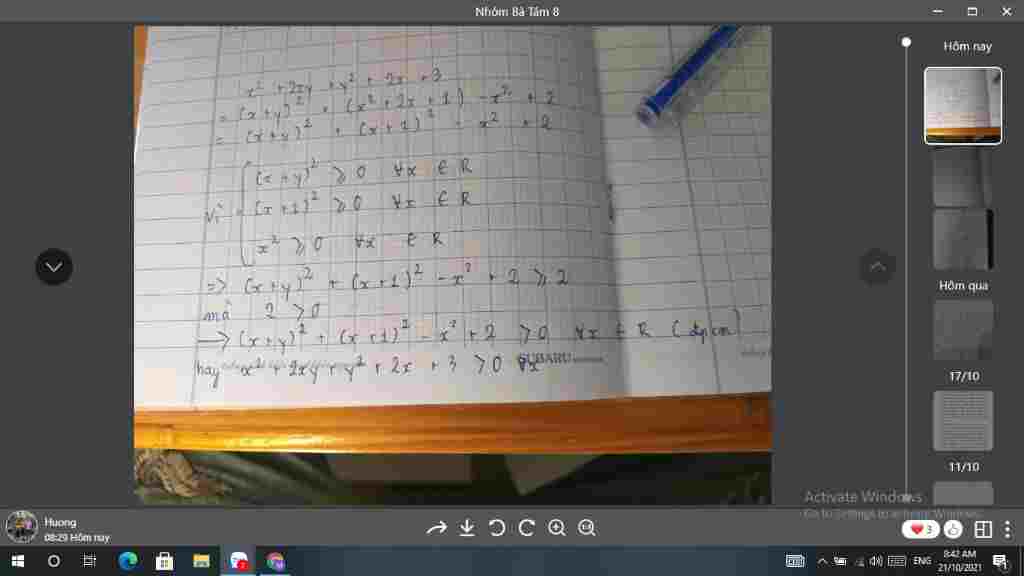 Nhóm 8à Tám 8
Hôm nay
x² + 2xy + y² + 2x + 3
= (x+y)² + (x² + 2x + 1) - x² + 2
= (x+y)² + (x+1)² - x² + 2
Vì
(x+y)² ≥ 0 ∀x ∈ R
(x+1)² ≥ 0 ∀x ∈ R
x² ≥ 0 ∀x ∈ R
=> (x+y)² + (x+1)² - x² + 2 ≥ 2
mà 2 > 0
-> (x+y)² + (x+1)² - x² + 2 > 0 ∀x ∈ R (đpcm)
hay x² + 2xy + y² + 2x + 3 > 0 ∀x
SUBARU
Hôm qua
17/10
11/10
Activate Windows
Go to Settings to activate Windows.
Huong
08:29 Hôm nay
3
ENG
8:42 AM
21/10/2021